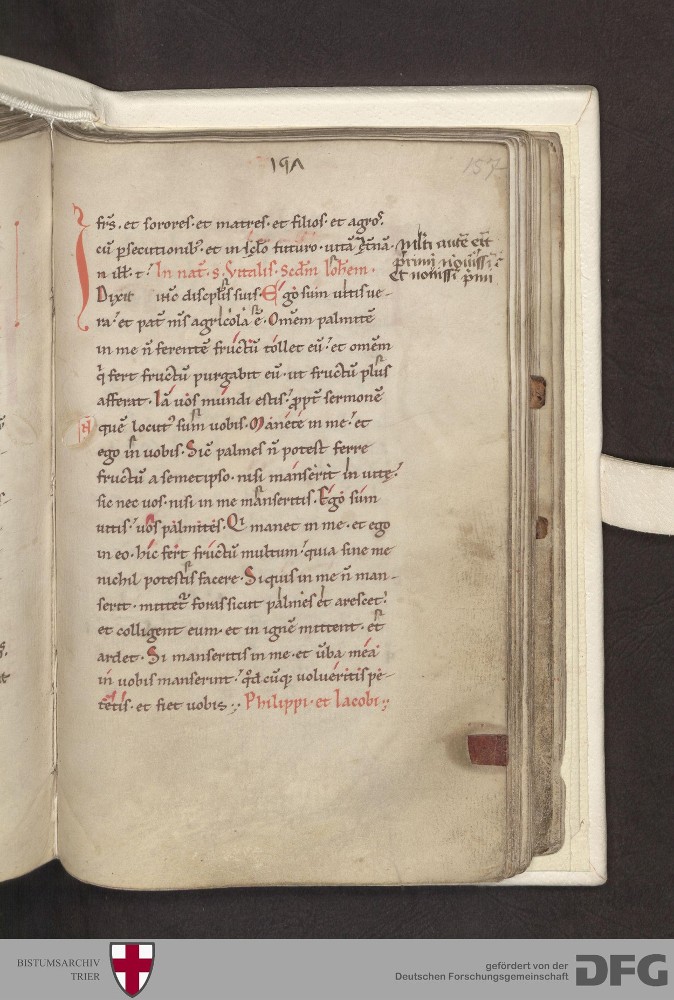 197
157
fr̄s. et sorores. et matres. et filios. et agros.
cū ꝑsecutionibꝫ. et in sc̄lo futuro. uitā et̄nā. Multi autē er̄t
primi nouissi
et nouissi p̄mi
In nat̄. s. Vitalis. Scdm̄ Ioh̄em.
Dixit ih̄c discip̄lis suis. Ego sum uitis ue-
ra. et pat̄ m̄s agricola ē. Omēm palmitē
in me n̄ ferentē fructū tollet eū. et omēm
q̄ fert fructū purgabit eū. ut fructū plus
afferat. Iā uos mundi estis. ꝓpt̄ sermonē
quē locutꝰ sum uobis. Manete in me. et
ego in uobis. Sic̄ palmes n̄ potest ferre
fructū a semetipso. nisi manserit in uite.
sic nec uos. nisi in me manseritis. Ego sum
uitis. uos palmites. Qi manet in me. et ego
in eo. hic fert fructū multum. quia sine me
nichil potestis facere. Si quis in me n̄ man-
serit. mittet̄ foras sicut palmes et arescet.
et colligent eum. et in ignē mittent. et
ardet. Si manseritis in me. et ūba mea
in uobis manserint. qd̄ cūq; uolueritis pe-
tetis. et fiet uobis. Philippi. et Iacobi.
BISTUMSARCHIV
TRIER
gefördert von der
Deutschen Forschungsgemeinschaft
DFG